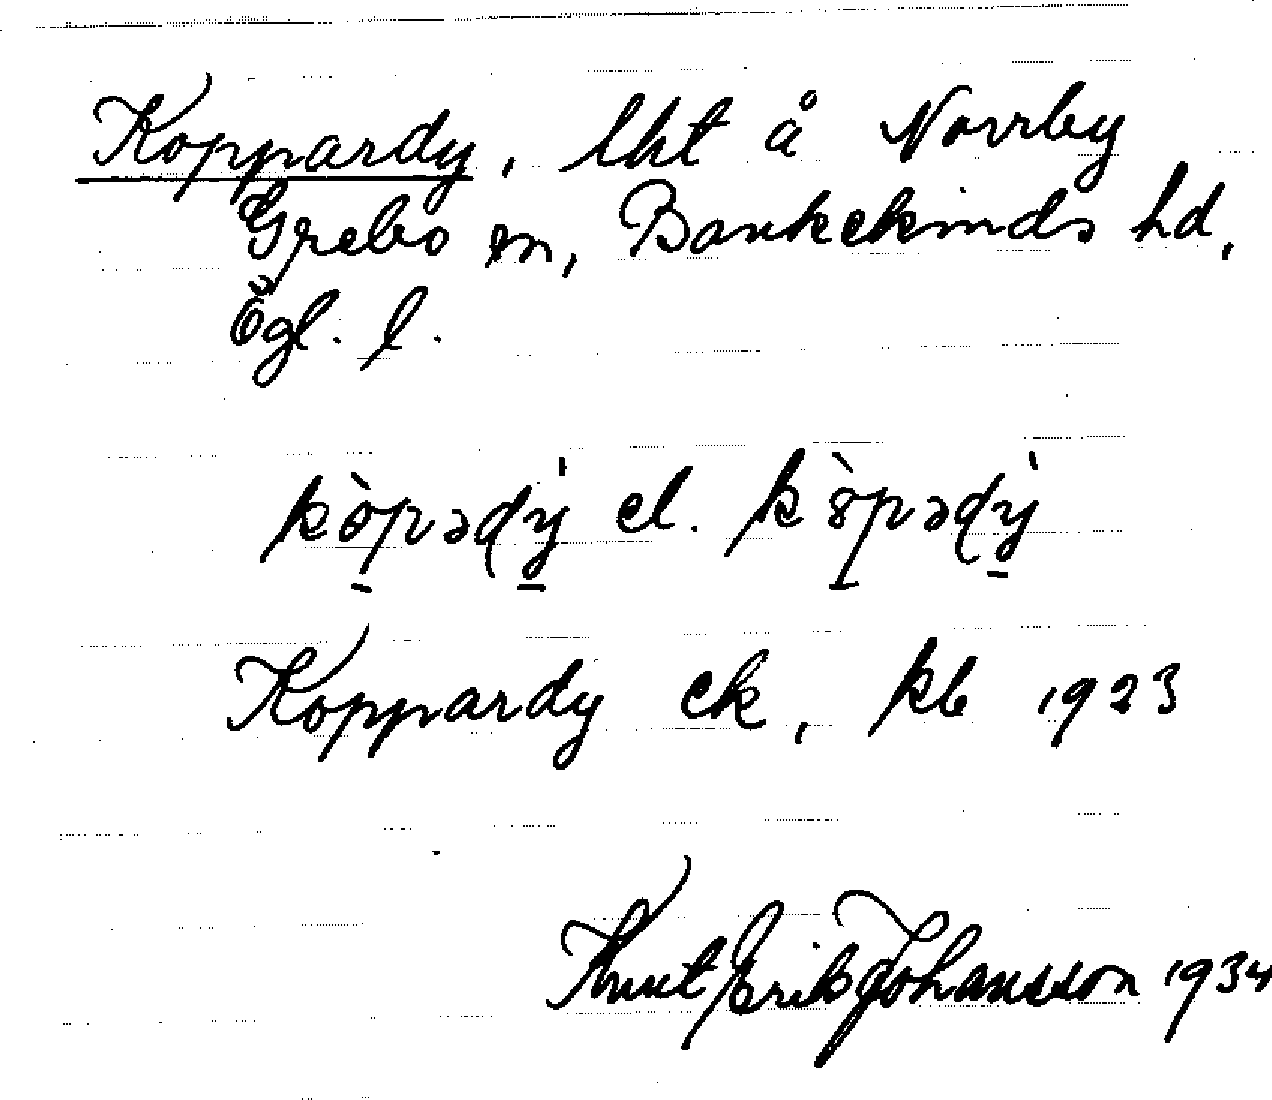 Koppardy, lht å Norrby
Grebo sn, Bankekinds hd,
Ögl. l.
kòpədy̍ el. kòpədy̍
Koppardy ek, kb 1923
Knut Erik Johansson 1934